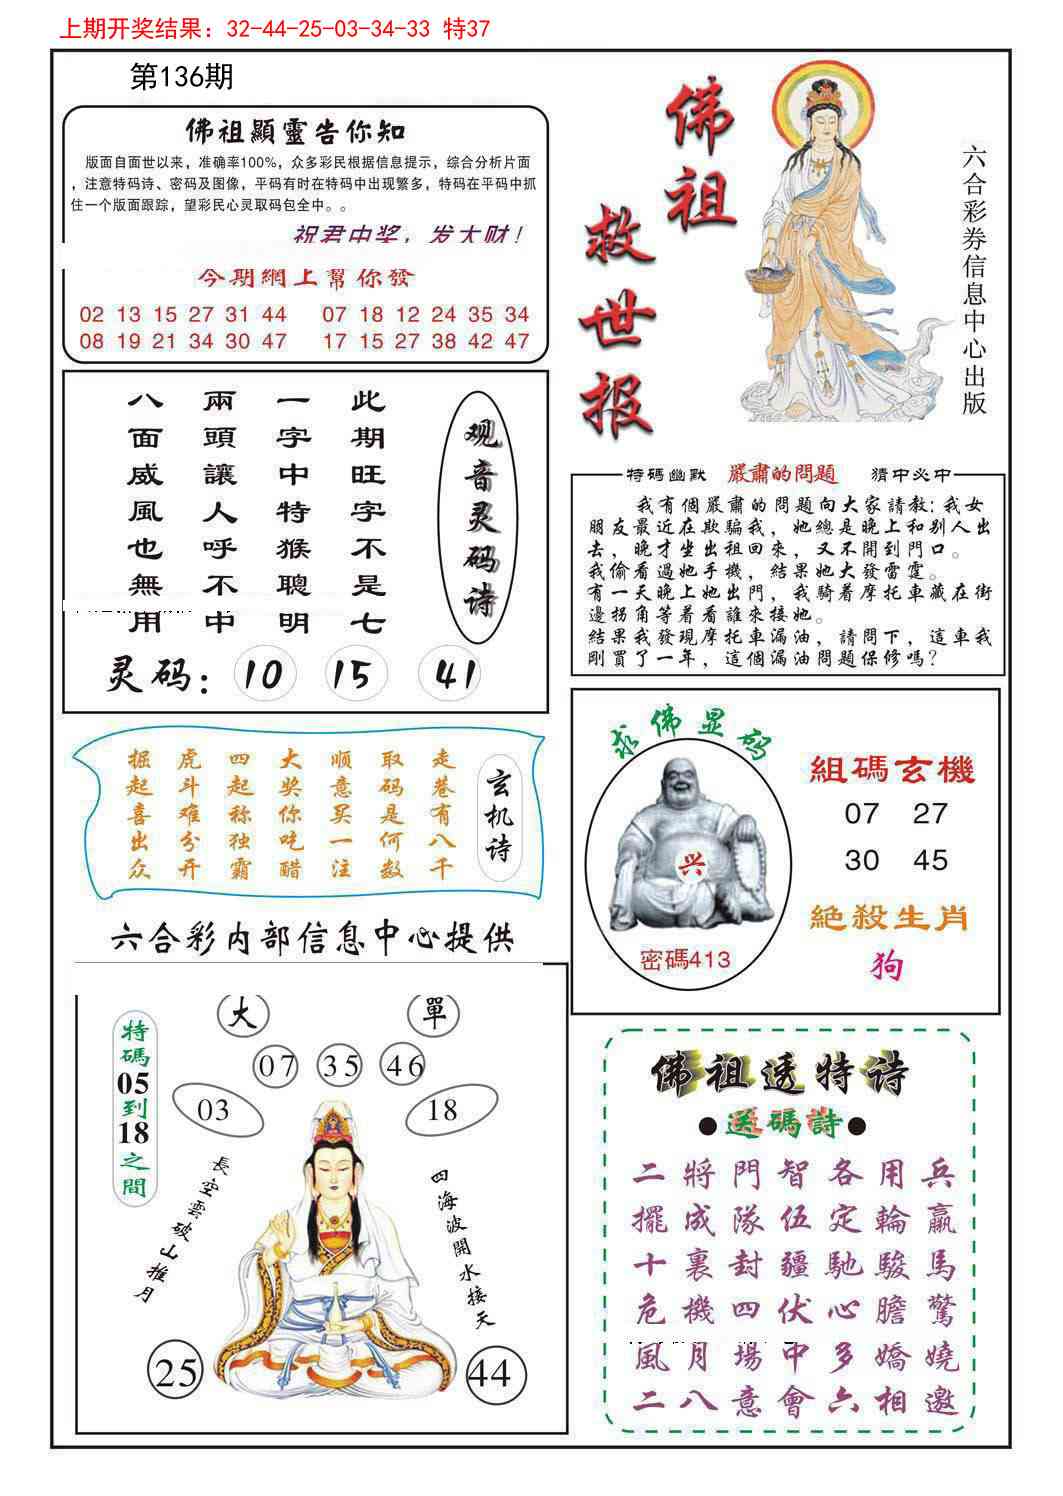 上期开奖结果：32-44-25-03-34-33 特37
第136期
佛祖顯靈告你知
版面自面世以来，准确率100%，众多彩民根据信息提示，综合分析片面
，注意特码诗、密码及图像，平码有时在特码中出现繁多，特码在平码中抓
住一个版面跟踪，望彩民心灵取码包全中。。
祝君中奖，发大财！
今期網上幫你發
02 13 15 27 31 44 07 18 12 24 35 34
08 19 21 34 30 47 17 15 27 38 42 47
佛祖
救世报
六合彩券信息中心出版
观音灵码诗
此期旺字不是七
一字中特猴聰明
兩頭讓人呼不中
八面威風也無用
灵码：10 15 41
特碼幽默 嚴肅的問題 猜中必中
我有個嚴肅的問題向大家請教：我女
朋友最近在欺騙我，她總是晚上和别人出
去，晚才坐出租回來，又不開到門口。
我偷看過她手機，結果她大發雷霆。
有一天晚上她出門，我騎着摩托車藏在街
邊拐角等着看誰來接她。
結果我發現摩托車漏油，請問下，這車我
剛買了一年，這個漏油問題保修嗎？
玄机诗
走巷有八千
取码是何数
顺意买一注
大奖你吃醋
四起称独霸
虎斗难分开
掘起喜出众
求佛显码
兴
密碼413
組碼玄機
07 27
30 45
絕殺生肖
狗
六合彩内部信息中心提供
大 單
07 35 46
03 18
特碼05到18之間
長空雲破山推月
四海波開水接天
25 44
佛祖透特诗
●送碼詩●
二將門智各用兵
擺成隊伍定輪贏
十裏封疆馳駿馬
危機四伏心膽驚
風月場中多嬌嬈
二八意會六相邀